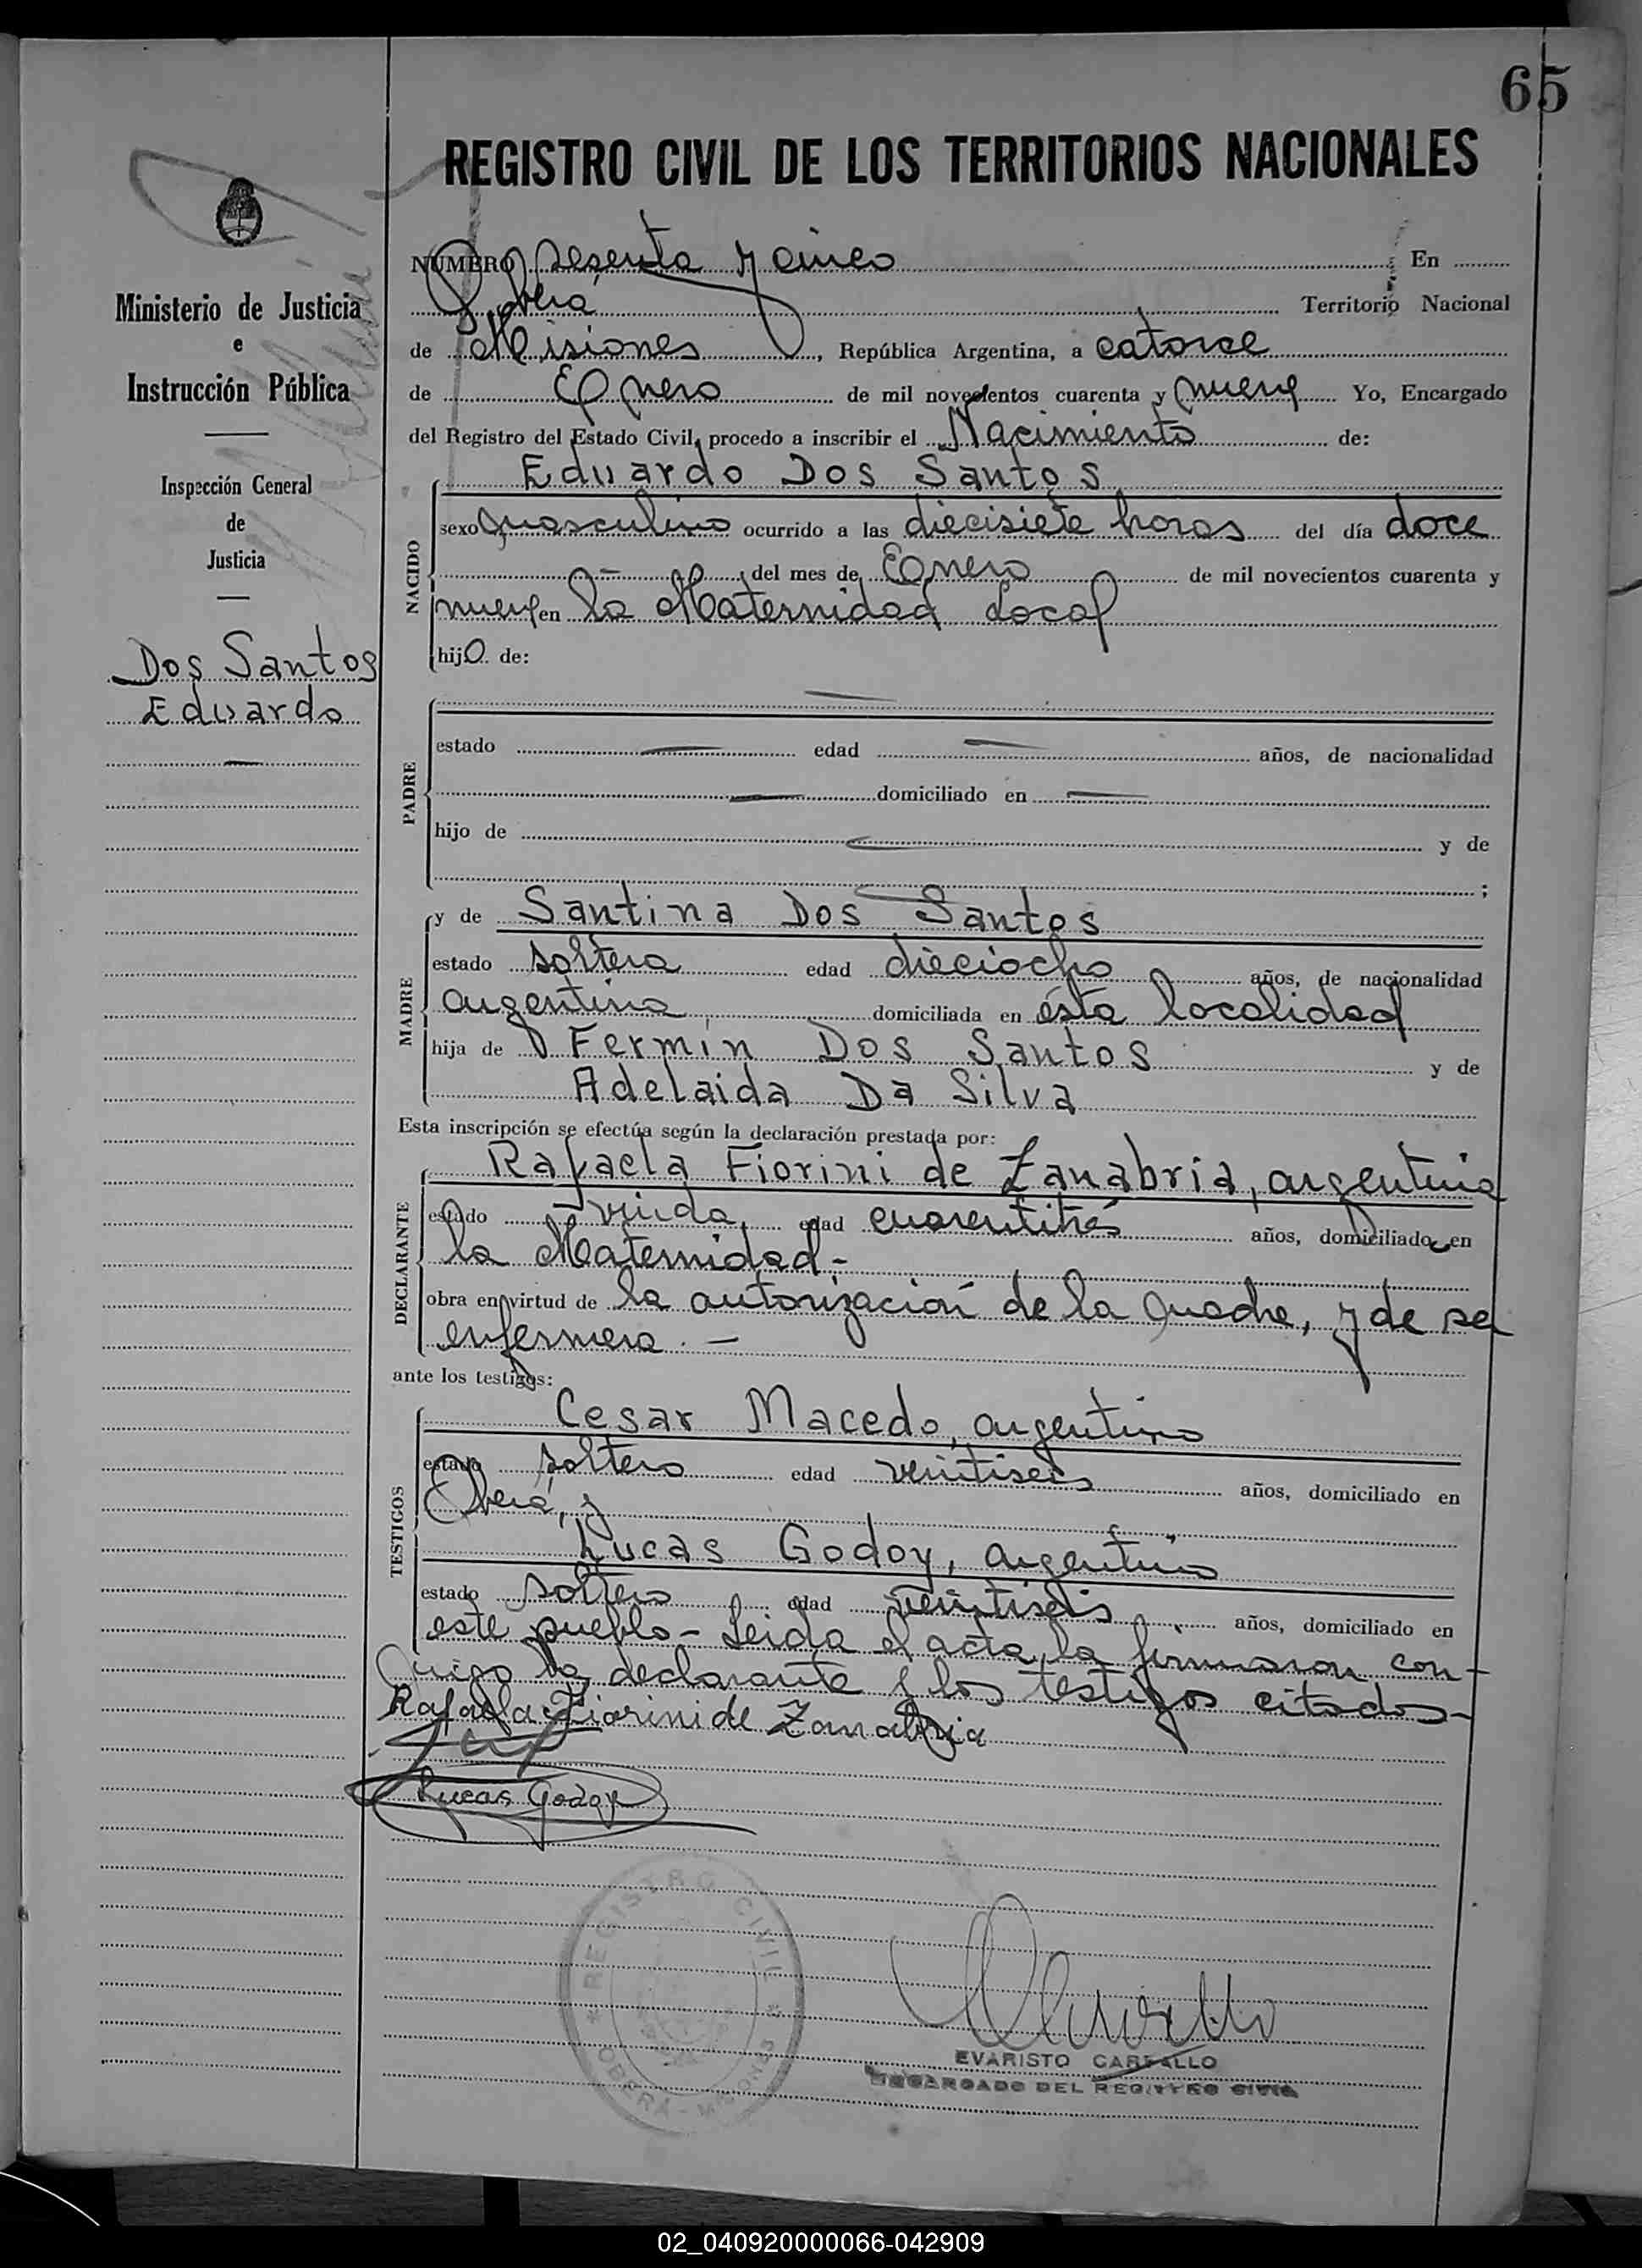 65
REGISTRO CIVIL DE LOS TERRITORIOS NACIONALES
Ministerio de Justicia
e
Instrucción Pública
Inspección General
de
Justicia
Dos Santos
Eduardo
NUMERO sesenta y cinco En
Oberá Territorio Nacional
de Misiones, República Argentina, a catorce
de Enero de mil novecientos cuarenta y nueve Yo, Encargado
del Registro del Estado Civil, procedo a inscribir el Nacimiento de:
Eduardo Dos Santos
NACIDO
sexo masculino ocurrido a las diecisiete horas del día doce
del mes de Enero de mil novecientos cuarenta y
nueve en la Maternidad Local
hijo de:
PADRE
estado edad años, de nacionalidad
domiciliado en
hijo de y de
;
MADRE
y de Santina Dos Santos
estado soltera edad dieciocho años, de nacionalidad
argentina domiciliada en ésta localidad
hija de Fermín Dos Santos y de
Adelaida Da Silva
Esta inscripción se efectúa según la declaración prestada por:
DECLARANTE
Rafaela Fiorini de Zanabria, argentina
estado viuda, edad cuarentitrés años, domiciliado en
la Maternidad.-
obra en virtud de la autorización de la madre, y de ser
enfermera. -
ante los testigos:
TESTIGOS
Cesar Macedo, argentino
estado soltero edad veintiseis años, domiciliado en
Oberá, y
Lucas Godoy, argentino
estado soltero edad veintiseis años, domiciliado en
este pueblo - Leida el acta, la firmaron con-
migo la declarante y los testigos citados-
Rafaela Fiorini de Zanabria
Lucas Godoy
REGISTRO CIVIL
OBERA - MISIONES
EVARISTO CARVALLO
ENCARGADO DEL REGISTRO CIVIL
02_040920000066-042909